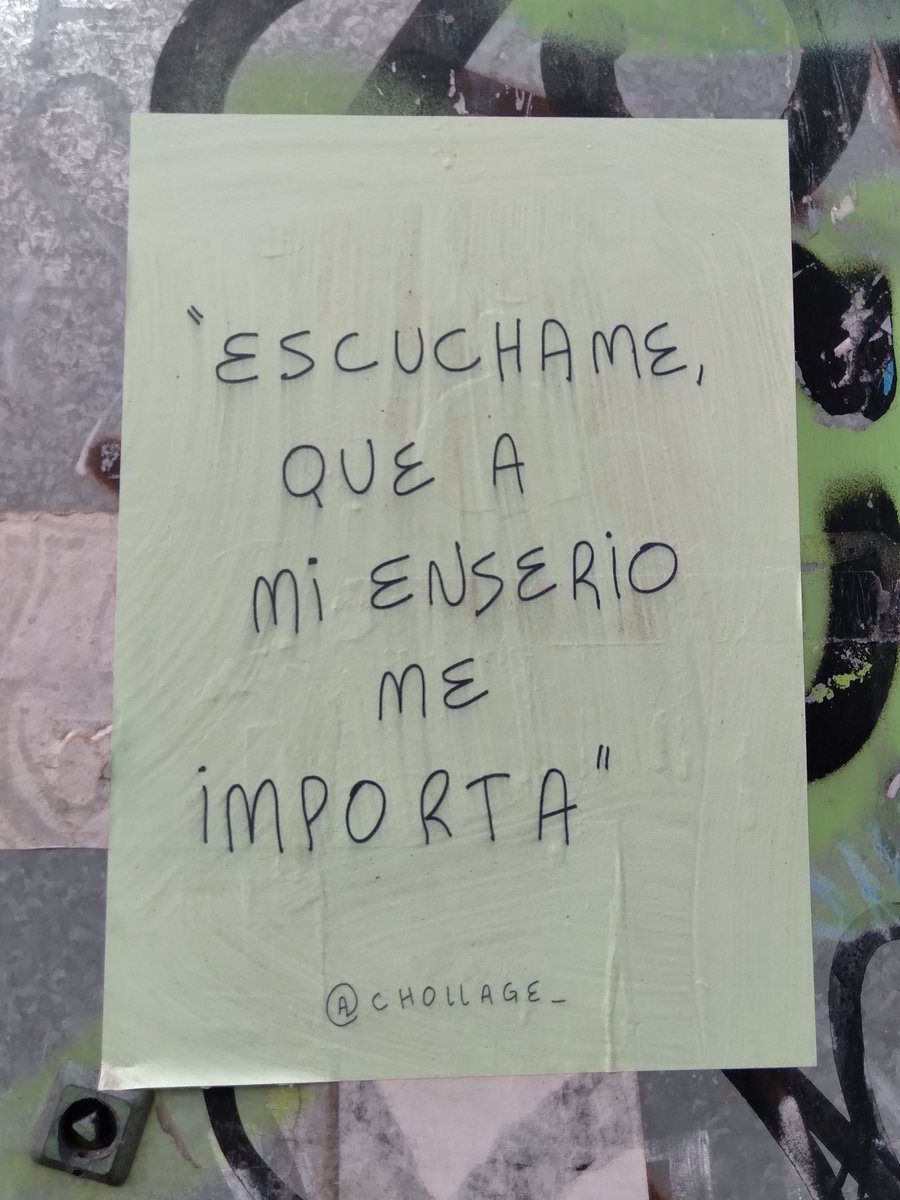 "ESCUCHAME,
QUE A
Mi ENSERiO
ME
iMPORTA"
@CHOLLAGE_